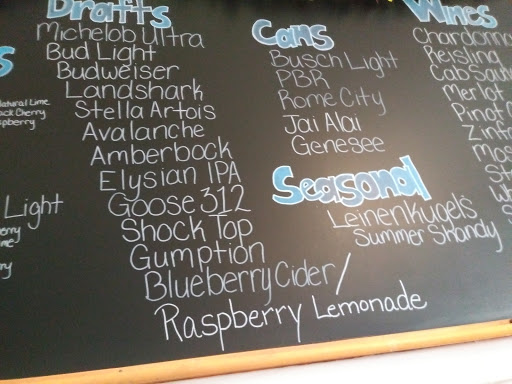 Drafts
Michelob Ultra
Bud Light
Budweiser
Landshark
Stella Artois
Avalanche
Amberbock
Elysian IPA
Goose 312
Shock Top
Gumption
Blueberry Cider/
Raspberry Lemonade
Cans
Busch Light
PBR
Rome City
Jai Alai
Genesee
Seasonal
Leinenkugel's
Summer Shandy
Wines
Chardonna
Reisling
Cab Sau
Merlot
Pinot
Zinf
Light